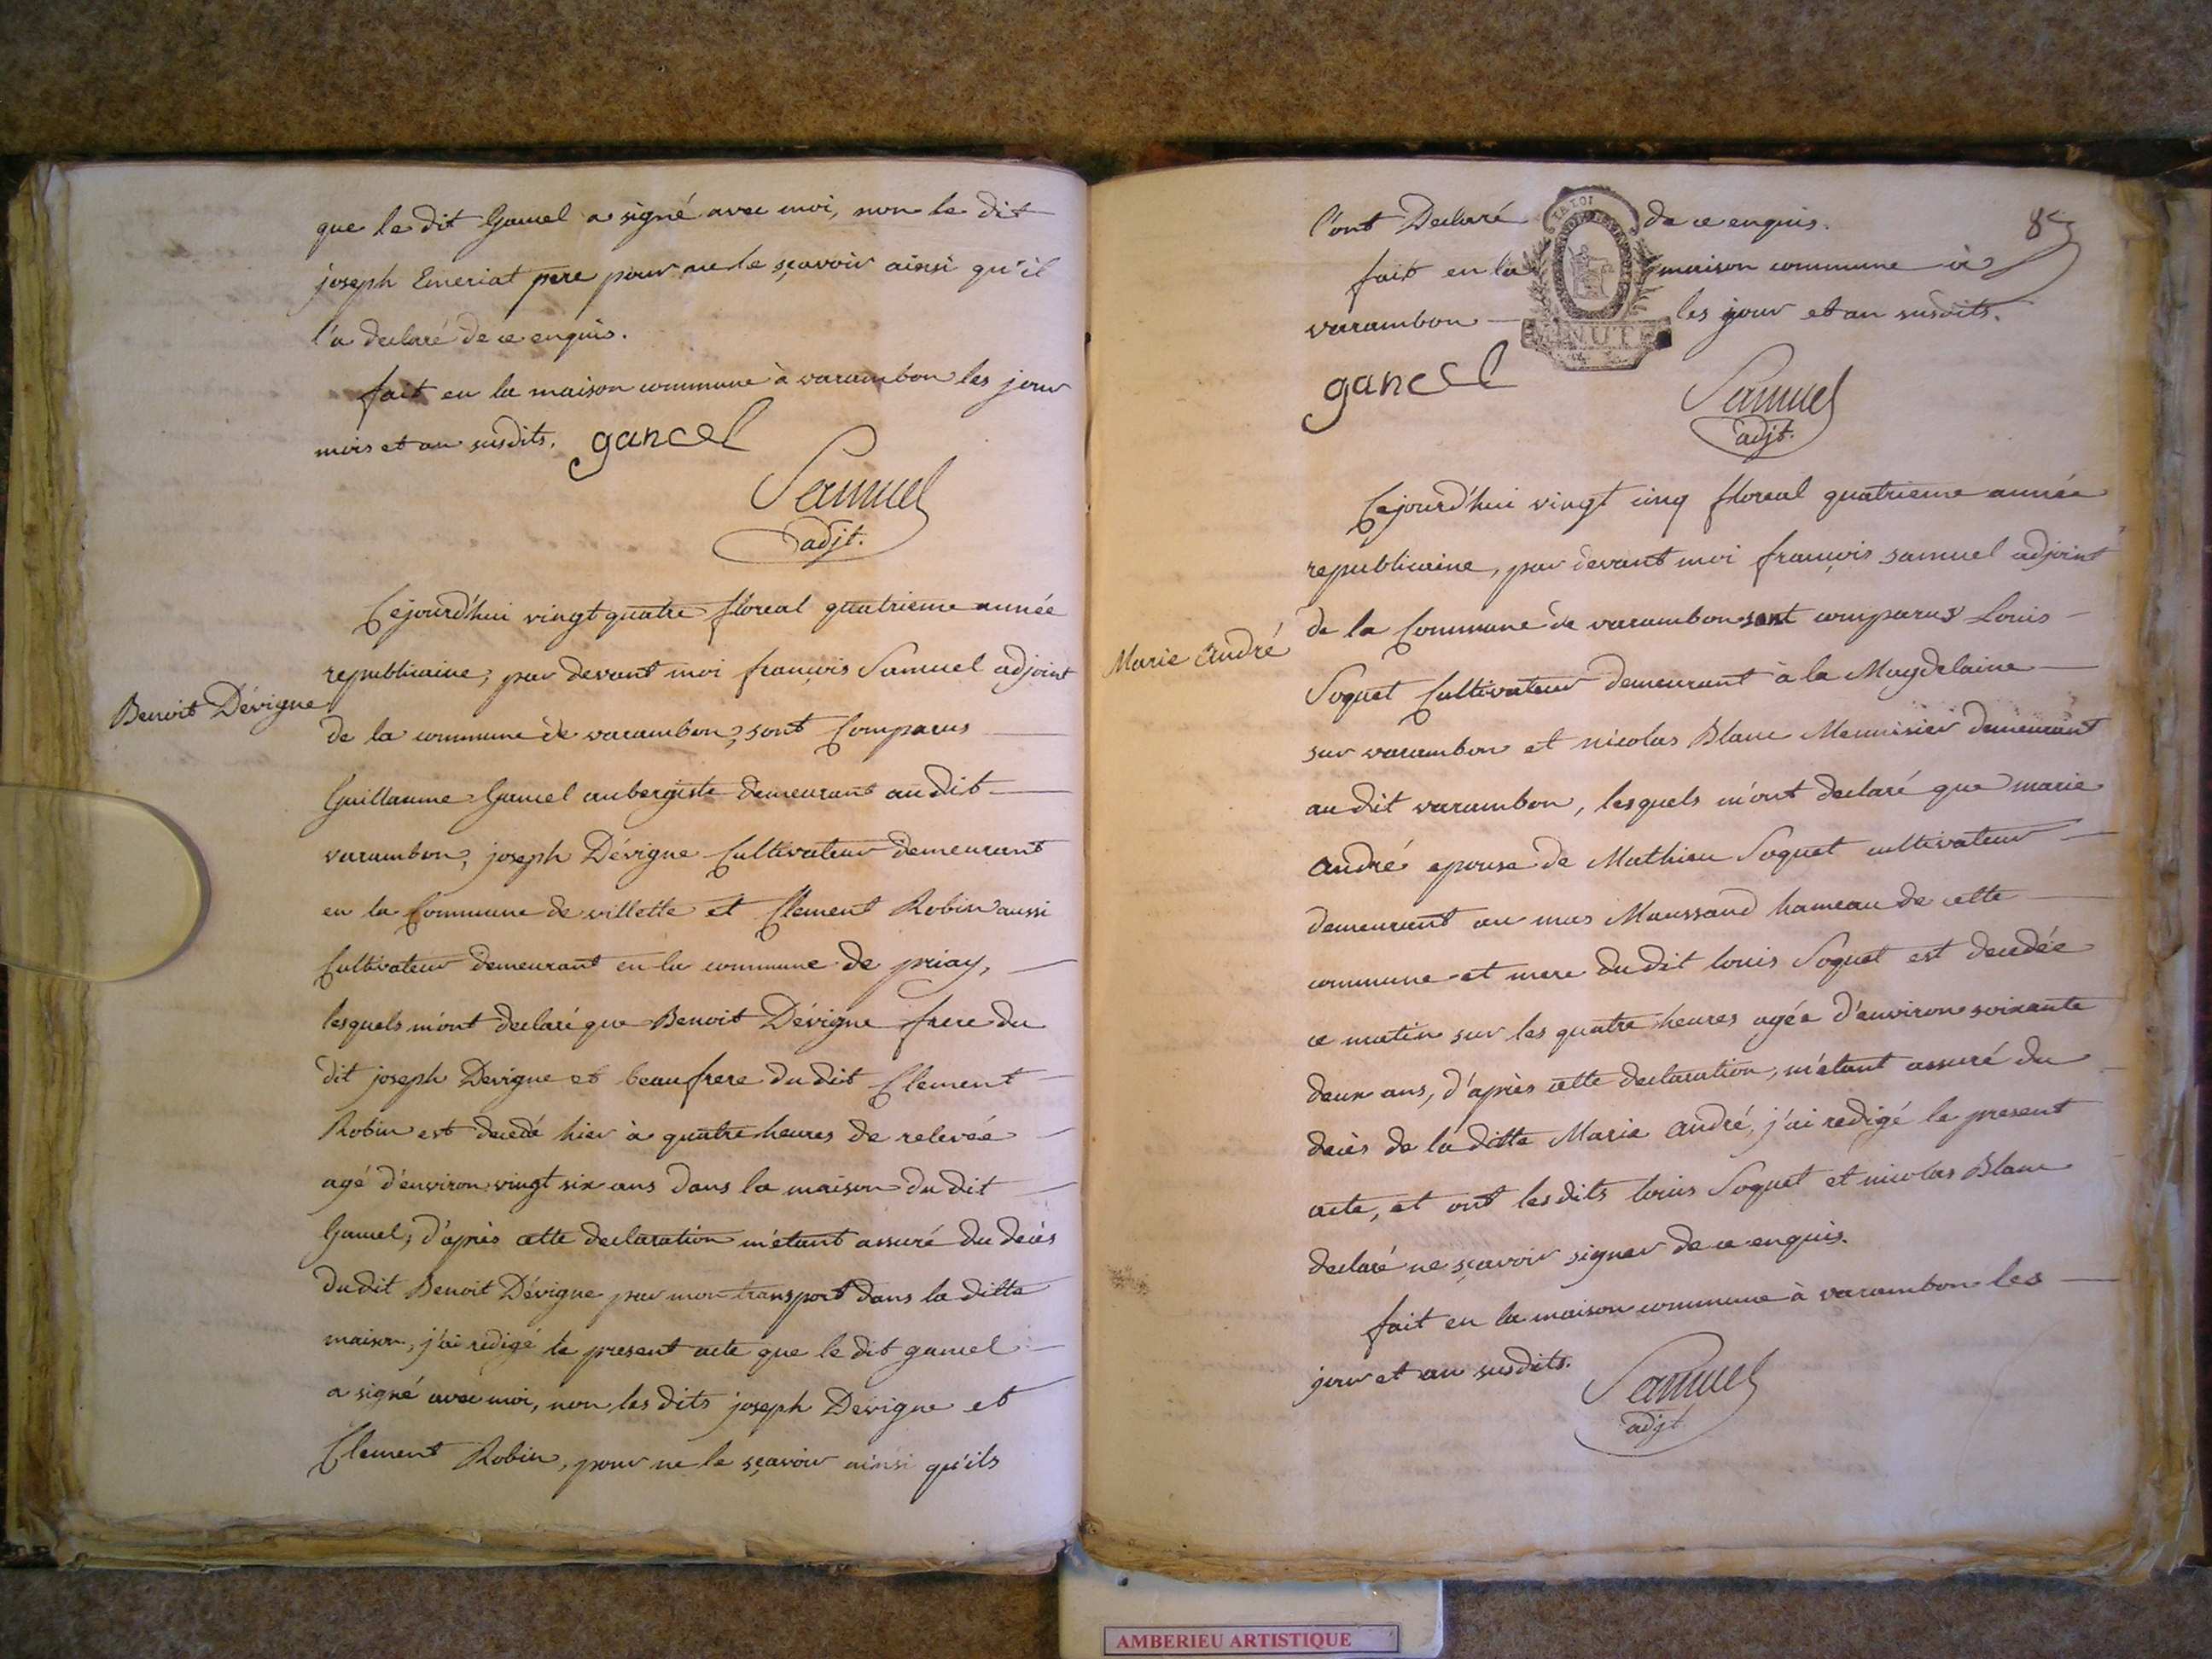 que le dit Gancel a signé avec moi, non le dit
joseph Emeriat pere pour ne le sçavoir ainsi qu'il
l'a declaré de ce enquis.
fait en la maison commune à varambon les jour
mois et an susdits. gancel
Samuel
adjt.
Cejourd'hui vingt quatre floreal quatrieme année
republicaine, par devant moi françois Samuel adjoint
Benoit Dévigne
de la commune de varambon, sont Comparus
Guillaume Gancel aubergiste demeurant au dit
varambon, joseph Dévigne Cultivateur demeurant
en la Commune de villette et Clement Robin aussi
Cultivateur demeurant en la commune de priay,
lesquels m'ont declaré que Benoit Dévigne frere du
dit joseph Devigne et beaufrere du dit Clement
Robin est decedé hier à quatre heures de relevée
agé d'environ vingt six ans dans la maison du dit
Gancel, d'après cette declaration m'étant assuré du decès
dudit Benoit Dévigne par mon transport dans la ditte
maison, j'ai redigé le present acte que le dit gancel
a signé avec moi, non les dits joseph Dévigne et
Clement Robin, pour ne le sçavoir ainsi qu'ils
l'ont Declaré de ce enquis.
fait en la maison commune à
varambon les jour et an susdits.
LA LOI
MINUTE
gancel
Samuel
adjt.
Cejourd'hui vingt cinq floreal quatrieme année
republicaine, par devant moi françois samuel adjoint
de la Commune de varambon sont comparus Louis
Marie André
Soquet Cultivateur demeurant à la Magdelaine
sur varambon et nicolas Blanc Menuisier demeurant
au dit varambon, lesquels m'ont declaré que marie
André epouse de Mathieu Soquet cultivateur
demeurant au mas Maussand hameau de cette
commune et mere du dit louis Soquet est decedée
ce matin sur les quatre heures agée d'environ soixante
deux ans, d'après cette declaration, m'étant assuré du
decès de la ditte Marie André, j'ai redigé le present
acte, et ont les dits louis Soquet et nicolas Blanc
declaré ne sçavoir signer de ce enquis.
fait en la maison commune à varambon les
jour et an susdits.
Samuel
adjt
AMBERIEU ARTISTIQUE